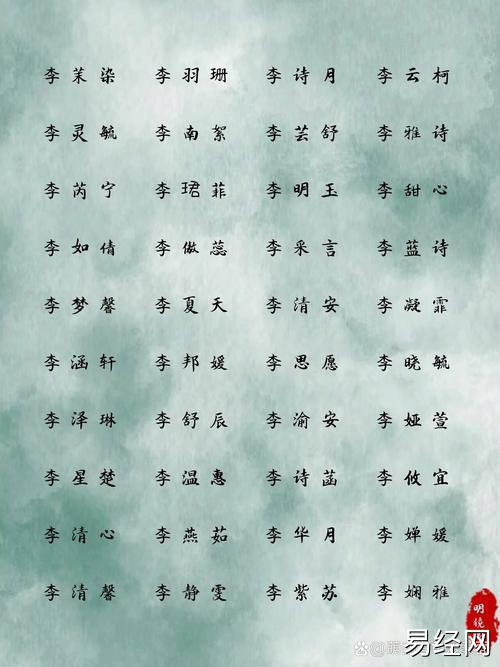 李茉染 李羽珊 李诗月 李云柯
李灵毓 李南絮 李芸舒 李雅诗
李芮宁 李珺菲 李明玉 李甜心
李如倩 李傲蕊 李采言 李蓝诗
李梦馨 李夏天 李清安 李凝霏
李涵轩 李邦媛 李思愿 李晓毓
李泽琳 李舒辰 李渝安 李娅萱
李星楚 李温惠 李诗菡 李攸宜
李清心 李燕茹 李华月 李婵媛
李清馨 李静雯 李紫苏 李娴雅
明镜
易经网